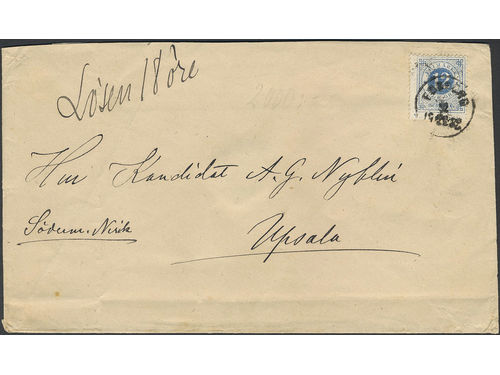 Lösen 18 öre
2000:-
Herr Kandidat A. G. Nyblin
Upsala